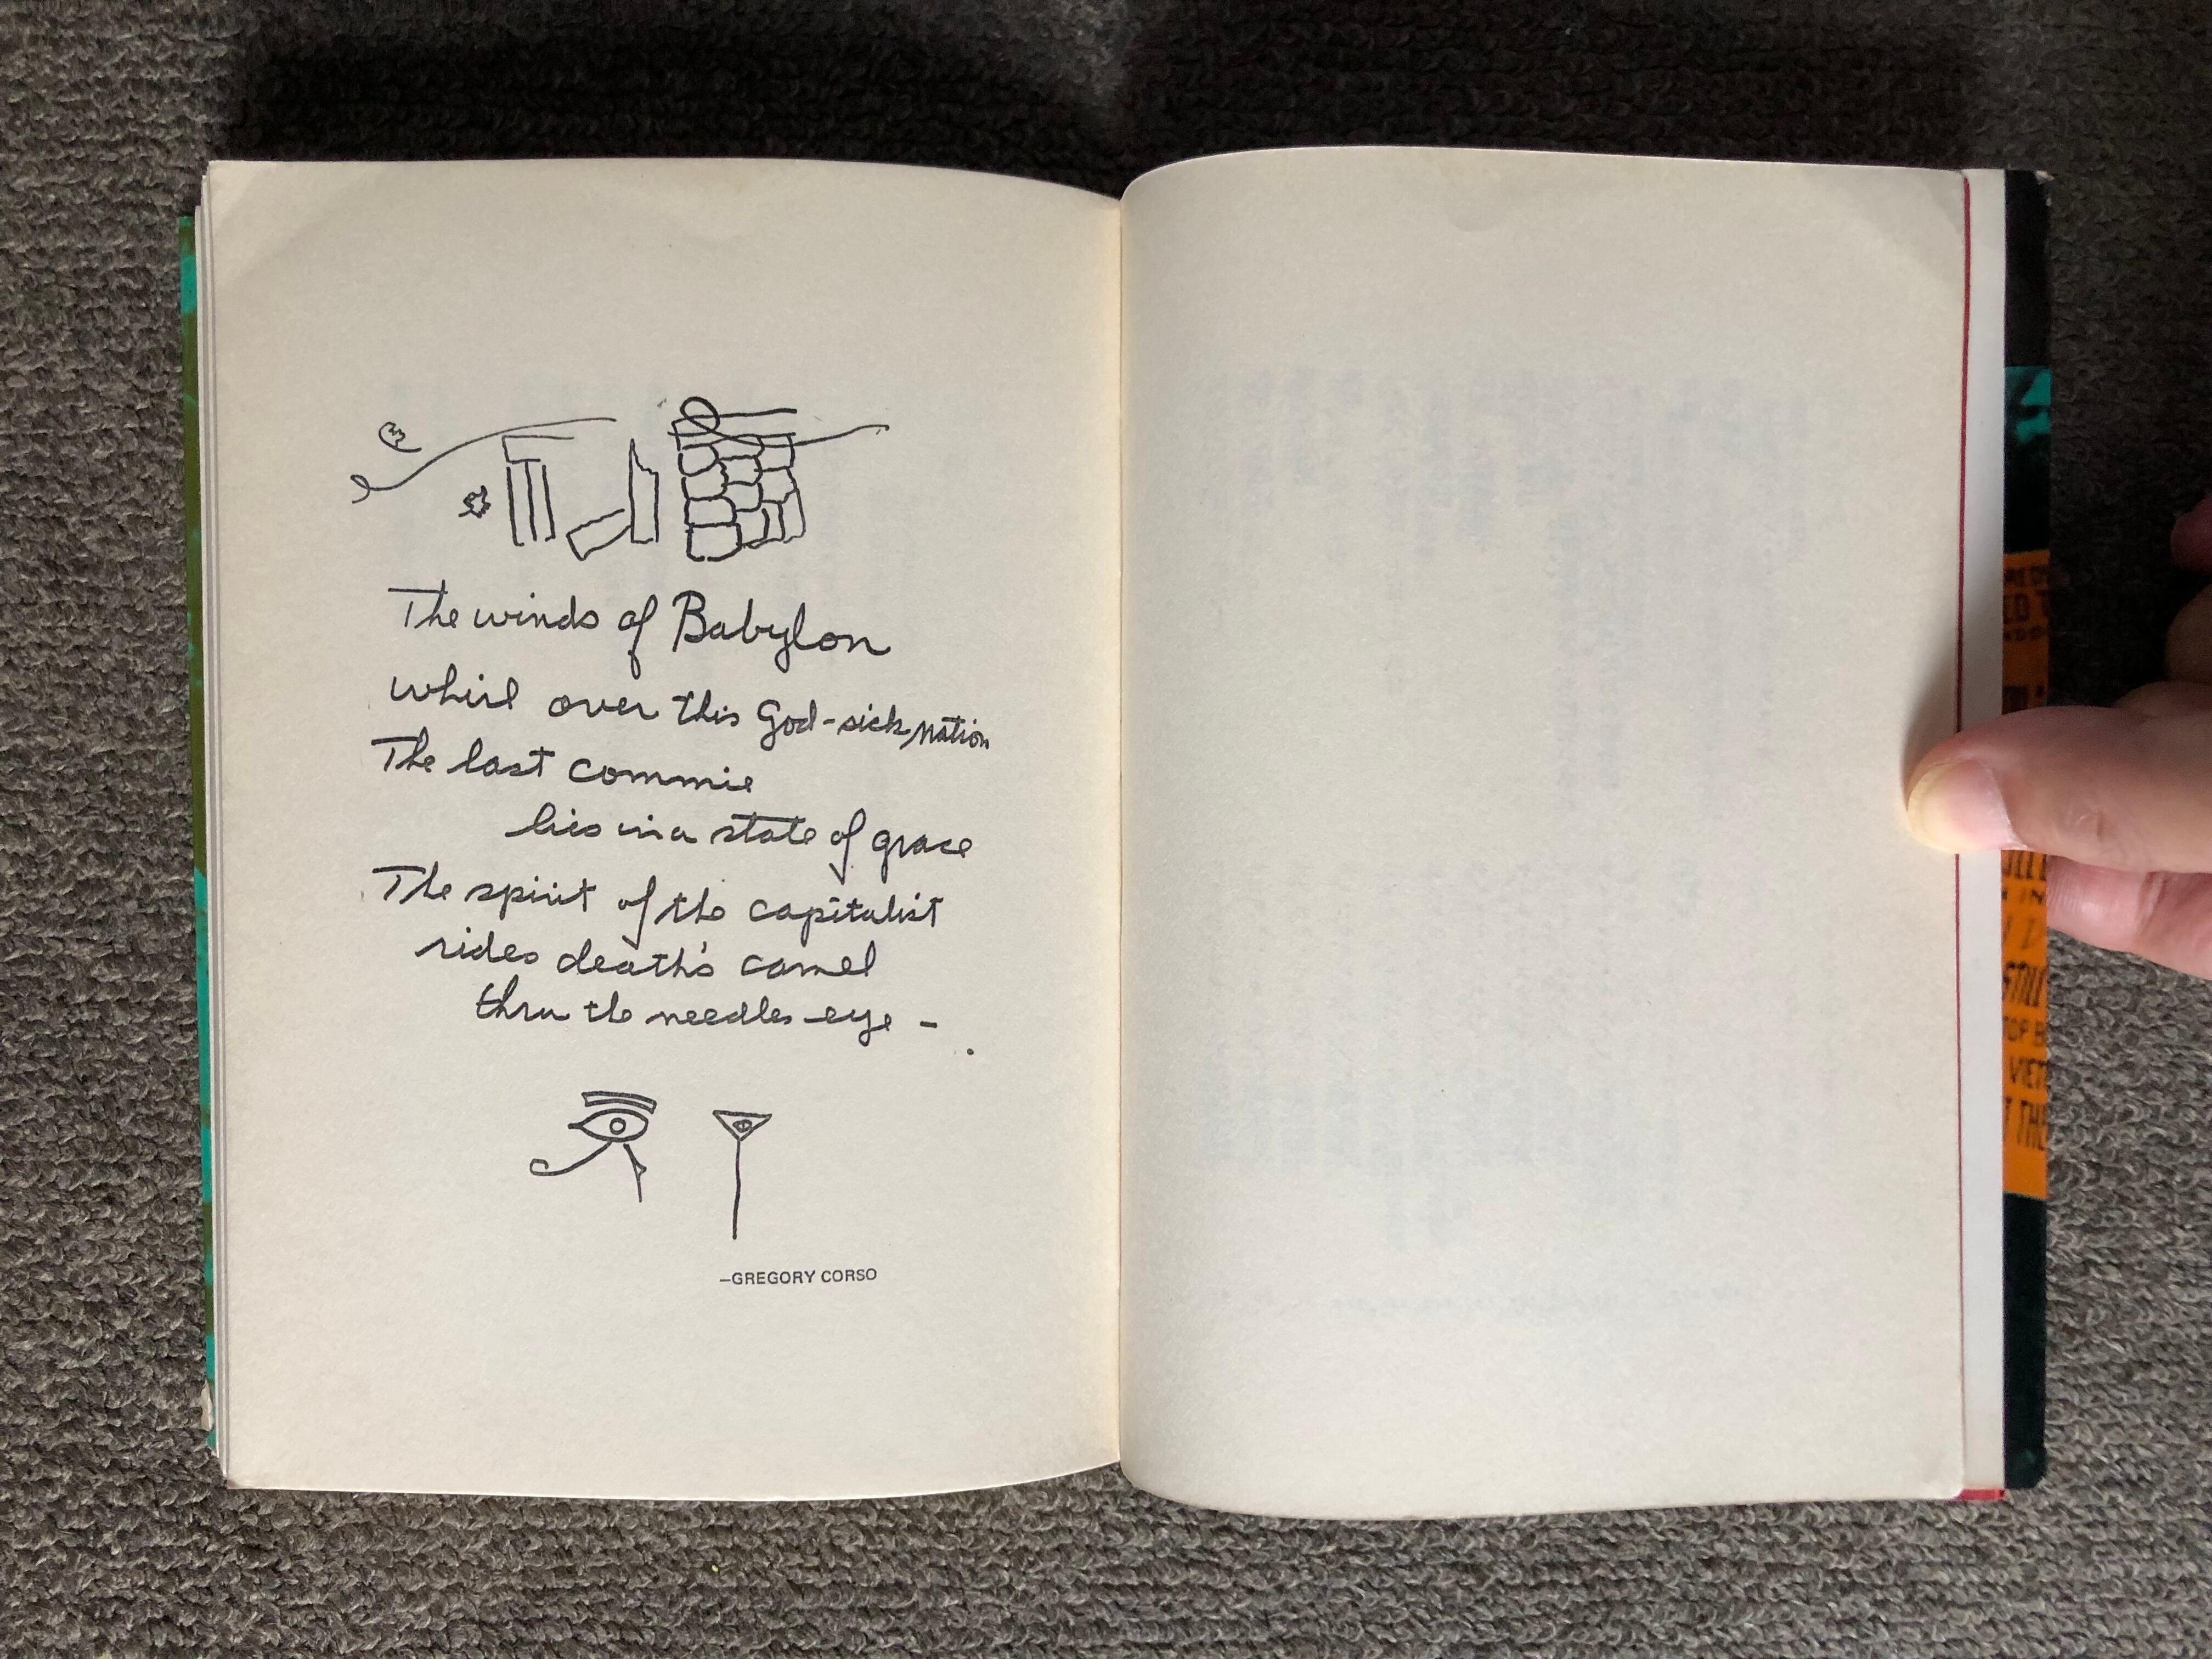 The winds of Babylon
whirl over this God-sick nation
The last commie
lies in a state of grace
The spirit of the capitalist
rides death's camel
thru the needles eye -
—GREGORY CORSO
STILL
TOP B
VIET
T THE